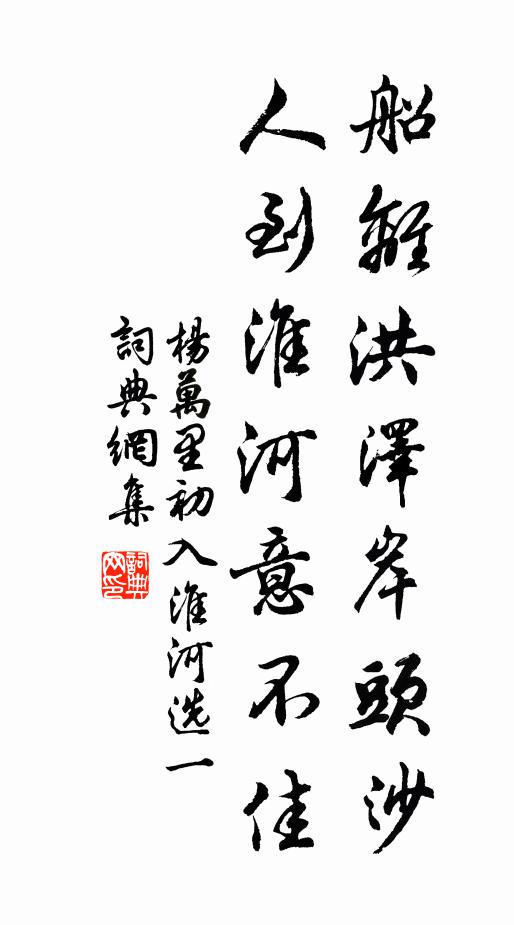 船離洪澤岸頭沙
人到淮河意不佳
楊萬里初入淮河选一
詞典網集
詞典网印